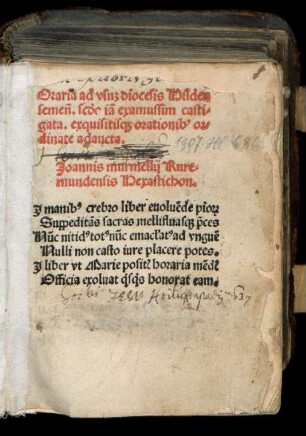 Oraria ad vsuʒ diocesis Hilden
semeñ. secōc iā examussim casti
gata. exquisitisqʒ orationib⁹ or
dinate adaucta.
1907 HC 686
Joannis murmellij Rure-
mundensis Hexastichon.
J manib⁹ crebro liber euoluēde pioꝝ
Suppeditās sacras mellifluasqʒ p̄ces
Nūc nitid⁹ tot⁹ nūc emacłat⁹ ad vnguē
Nulli non casto iure placere potes.
J liber vt Marie posit⁹ horaria mēdꝭ
Officia exoluat qͥsqͥs honorat eam.